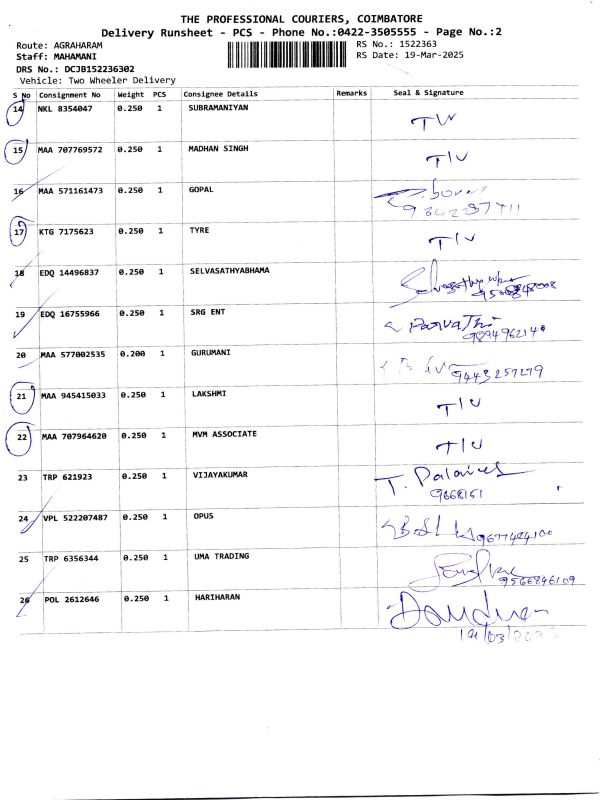 THE PROFESSIONAL COURIERS, COIMBATORE
Delivery Runsheet - PCS - Phone No.:0422-3505555 - Page No.:2
Route: AGRAHARAM RS No.: 1522363
Staff: MAHAMANI RS Date: 19-Mar-2025
DRS No.: DCJB152236302
Vehicle: Two Wheeler Delivery
S No Consignment No Weight PCS Consignee Details Remarks Seal & Signature
14 NKL 8354047 0.250 1 SUBRAMANIYAN
15 MAA 707769572 0.250 1 MADHAN SINGH TIV
16 MAA 571161473 0.250 1 GOPAL
17 KTG 7175623 0.250 1 TYRE TIV
18 EDQ 14496837 0.250 1 SELVASATHYABHAMA
19 EDQ 16755966 0.250 1 SRG ENT ParvaThi
9894962140
20 MAA 577002535 0.200 1 GURUMANI
9443257279
21 MAA 945415033 0.250 1 LAKSHMI TIV
22 MAA 707964620 0.250 1 MVM ASSOCIATE TIV
23 TRP 621923 0.250 1 VIJAYAKUMAR
9668151
24 VPL 522207487 0.250 1 OPUS 9677484100
25 TRP 6356344 0.250 1 UMA TRADING
9566846109
26 POL 2612646 0.250 1 HARIHARAN